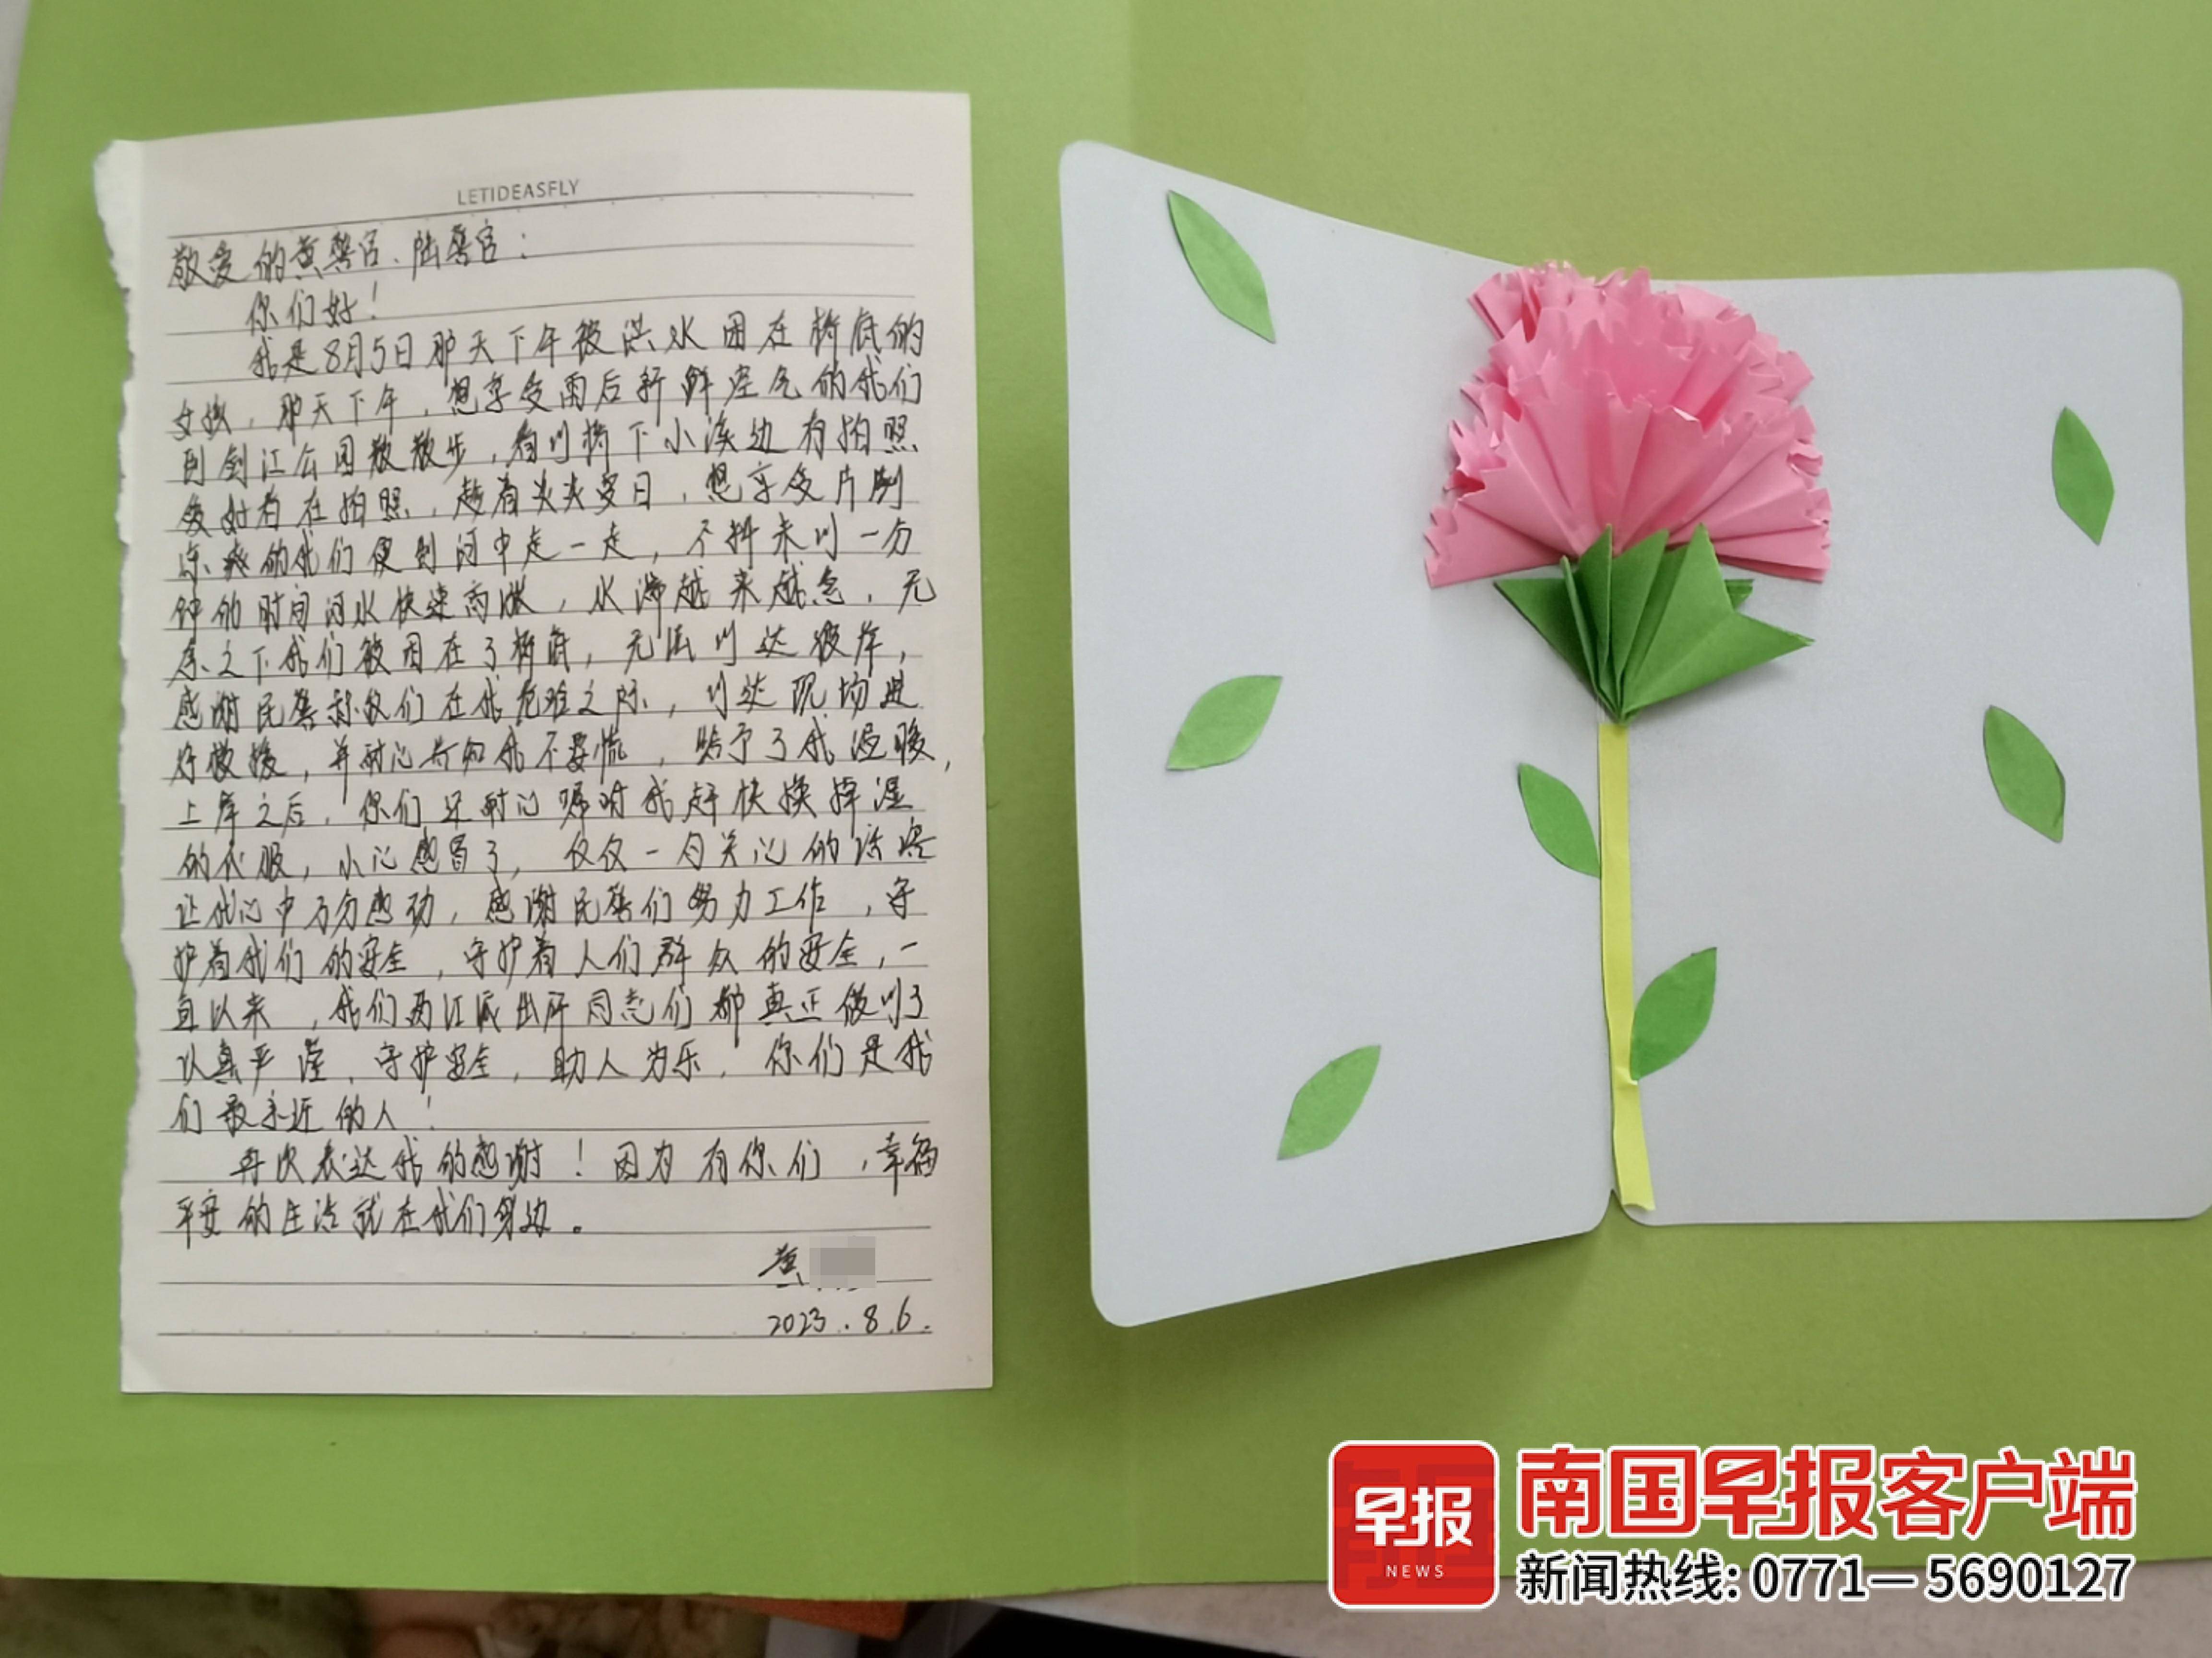 LETIDEASFLY
敬爱的黄警官、陆警官：
你们好！
我是8月5日那天下午被洪水困在桥底的
女孩，那天下午，想享受雨后新鲜空气的我们
到剑江公园散散步，看到桥下小溪边有拍照
爱好者在拍照，趁着炎炎夏日，想享受片刻
凉爽的我们便到河中走一走，不料未到一分
钟的时间河水快速高涨，水滞越来越急，无
奈之下我们被困在了桥底，无法到达彼岸，
感谢民警叔叔们在我危险之际，到达现场进
行救援，并耐心告知我不要慌，给予了我温暖，
上岸之后，你们还耐心嘱咐我赶快换掉湿
的衣服，小心感冒了，仅仅一句关心的话语
让我心中万分感动，感谢民警们努力工作，守
护着我们的安全，守护着人们群众的安全，一
直以来，我们两江派出所同志们都真正做到了
认真严谨，守护安全，助人为乐，你们是我
们最亲近的人！
再次表达我的感谢！因为有你们，幸福
平安的生活就在我们身边。
黄
2023.8.6.
早报
NEWS
南国早报客户端
新闻热线：0771—5690127